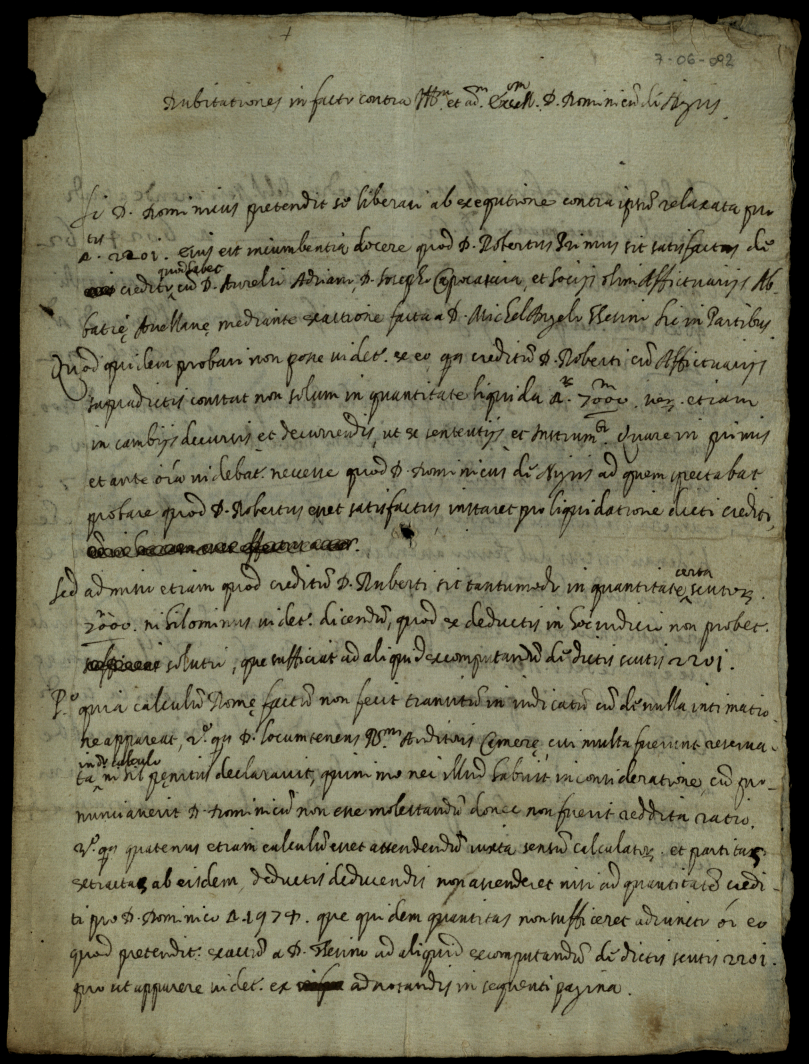 7-06-82
Dubitationes in facto contra Ill.m et ad.m Excell.m D. Dominicũ de Nigris
Si D. Dominicus pretendit se liberari ab exequtione contra ipsũ relaxata pro
tis
▽. 2201. eius est incumbentia docere quod D. Robertus Primus sit satisfactus de
quod habet
credito cũ D. Aurelio Adriano, D. Joseph Caprataria, et Socijs olim Affictuarijs Ab-
batię Avellanę mediante exactione facta a D. Michel Angelo Severino hic in Partibus
Quod quidem probari non posse videt.r ex eo qa creditũ D. Roberti cũ Affictuarijs
supradictis constat non solum in quantitate liquida ▽. 7000. ver. etiam
in cambijs decursis et decurrendis, ut ex sententijs et Instrum.bs Quare in primis
et ante oĩa videbat.r necesse quod D. Dominicus de Nigris ad quem spectabat
probare quod D. Robertus esset satisfactus instaret pro liquidatione dicti crediti,
Sed admisso etiam quod creditũ D. Ruberti sit tantumodo in quantitate certa scutor.
7000. nihilominus videt.r dicendũ, quod ex deductis in hoc iudicio nõn probet.r
solutio, que sufficiat ad aliquid excomputandũ de dictis scutis 2201.
P.o quia calculũ Romę factũ non fecit transitũ in iudicatũ cũ de nulla intimatio-
ne appareat, 2.o qa D. locumtenens Ill.mi Auditoris Camerę cui multa fuerunt reserva-
inde calculo
ta nihil pęnitus declaravit, quinimo nec illud habuit in consideratione, cũ pro-
nunciaverit D. Dominicũ non esse molestandũ donec non fuerit reddita ratio.
3.o qa quatenus etiam calculũ esset attendendũ iuxta sensũ calculator. et partitas
extractas ab eisdem, deductis deducendis non ascenderet nisi ad quantitatẽ credi-
ti pro D. Dominico ▽. 1974. que quidem quantitas non sufficeret adiuncto õi eo
quod pretendit.r exactũ a D. Severino ad aliquid excomputandũ de dictis scutis 2201.
prout apparere videt.r ex adnotandis in sequenti pagina.